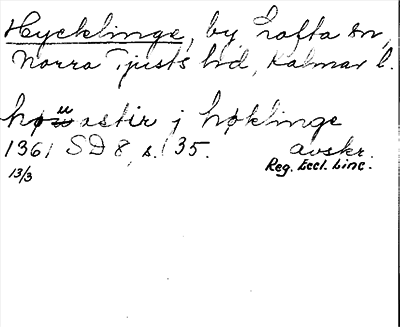 Hycklinge, by, Lofta sn,
Norra Tjusts hd, Kalmar l.
astir j høklinge
1361 SD 8, s. 135. avskr.
13/3 Reg. Eccl. Linc.